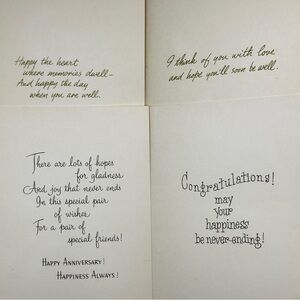 Happy the heart
where memories dwell—
And happy the day
when you are well.
I think of you with love
and hope you'll soon be well.
There are lots of hopes
for gladness
And joy that never ends
In this special pair
of wishes
For a pair of
special friends!
HAPPY ANNIVERSARY!
HAPPINESS ALWAYS!
Congratulations!
may
your
happiness
be never-ending!